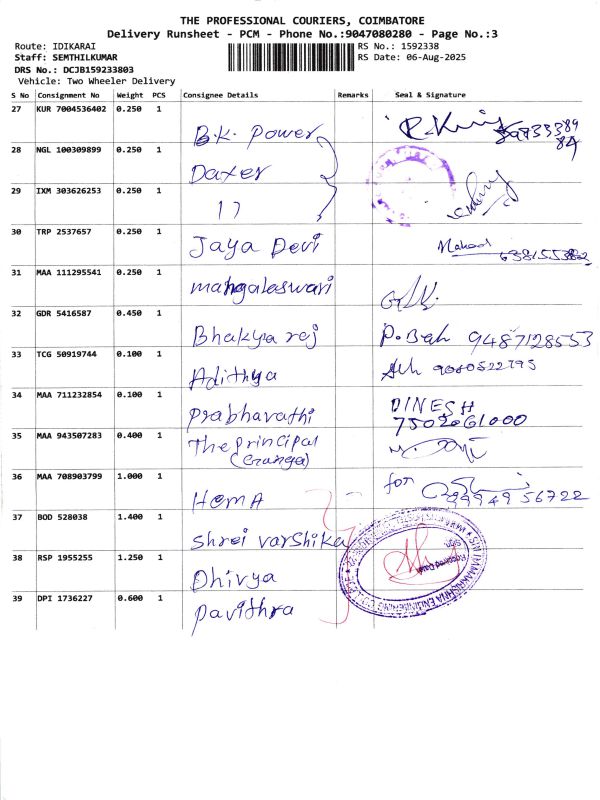 THE PROFESSIONAL COURIERS, COIMBATORE
Delivery Runsheet - PCM - Phone No.:9047080280 - Page No.:3
Route: IDIKARAI
RS No.: 1592338
Staff: SEMTHILKUMAR
RS Date: 06-Aug-2025
DRS No.: DCJB159233803
Vehicle: Two Wheeler Delivery
S No Consignment No Weight PCS Consignee Details Remarks Seal & Signature
27 KUR 7004536402 0.250 1 B.K. Power
28 NGL 100309899 0.250 1 Daxer
29 IXM 303626253 0.250 1 17
30 TRP 2537657 0.250 1 Jaya Devi
31 MAA 111295541 0.250 1 mangaleswari
32 GDR 5416587 0.450 1 Bhakya raj 9487128553
33 TCG 50919744 0.100 1 Adithya
34 MAA 711232854 0.100 1 Prabhavathi DINESH
7502061000
35 MAA 943507283 0.400 1 The Principal
(Ganga)
36 MAA 708903799 1.000 1 HemA for
37 BOD 528038 1.400 1 Shrei varshika
38 RSP 1955255 1.250 1 Dhivya
39 DPI 1736227 0.600 1 Pavithra